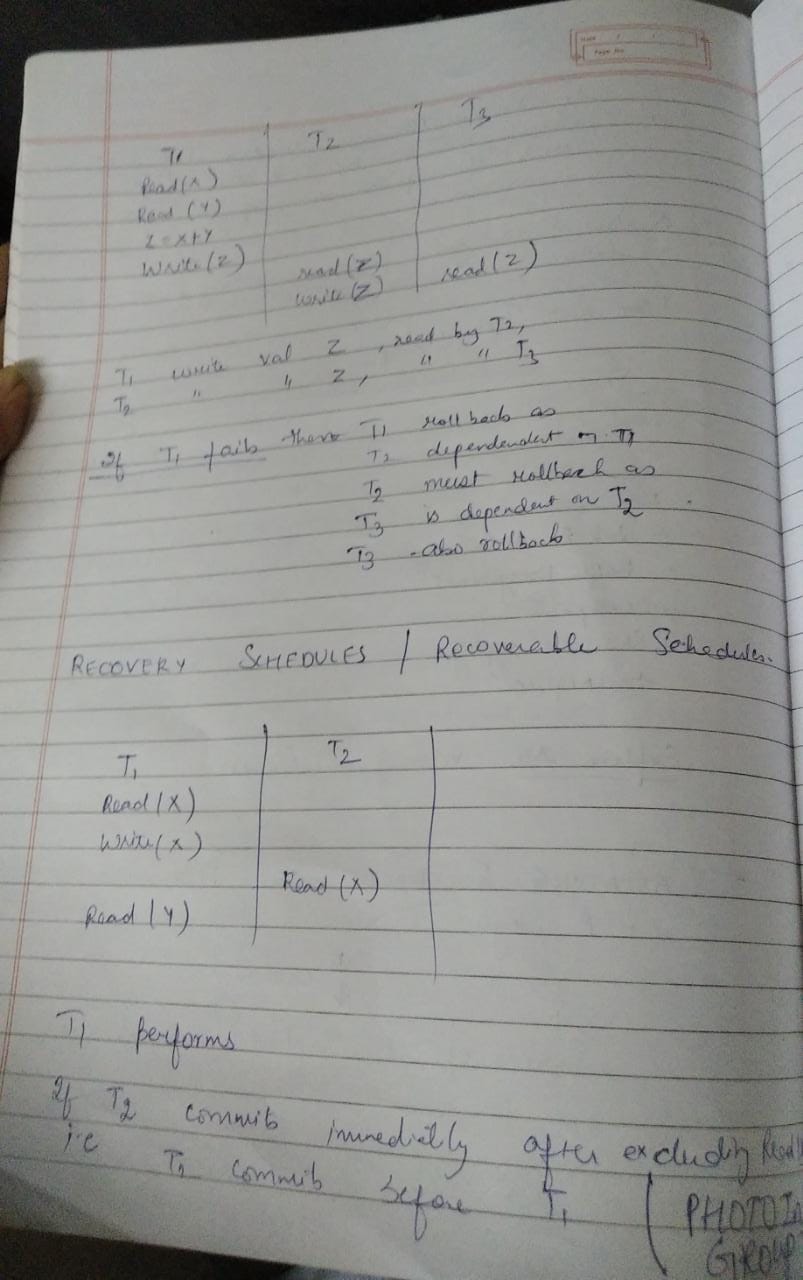 T1 T2 T3
Read(X)
Read (Y)
Z = X+Y
Write(Z) read(Z) read(Z)
write(Z)
T1 write val Z, read by T2,
T2 " " Z, " " T3
If T1 fails there T1 rollback as
T2 dependendent on T1
T2 must rollback as
T3 is dependent on T2.
T3 -also rollback
RECOVERY SCHEDULES / Recoverable Schedules.
T1 T2
Read(X)
Write(X)
Read(X)
Read(Y)
T1 performs
If T2 commits immediatly after excluding Read
i.e T2 commits before T1 (PHOTO
GROUP